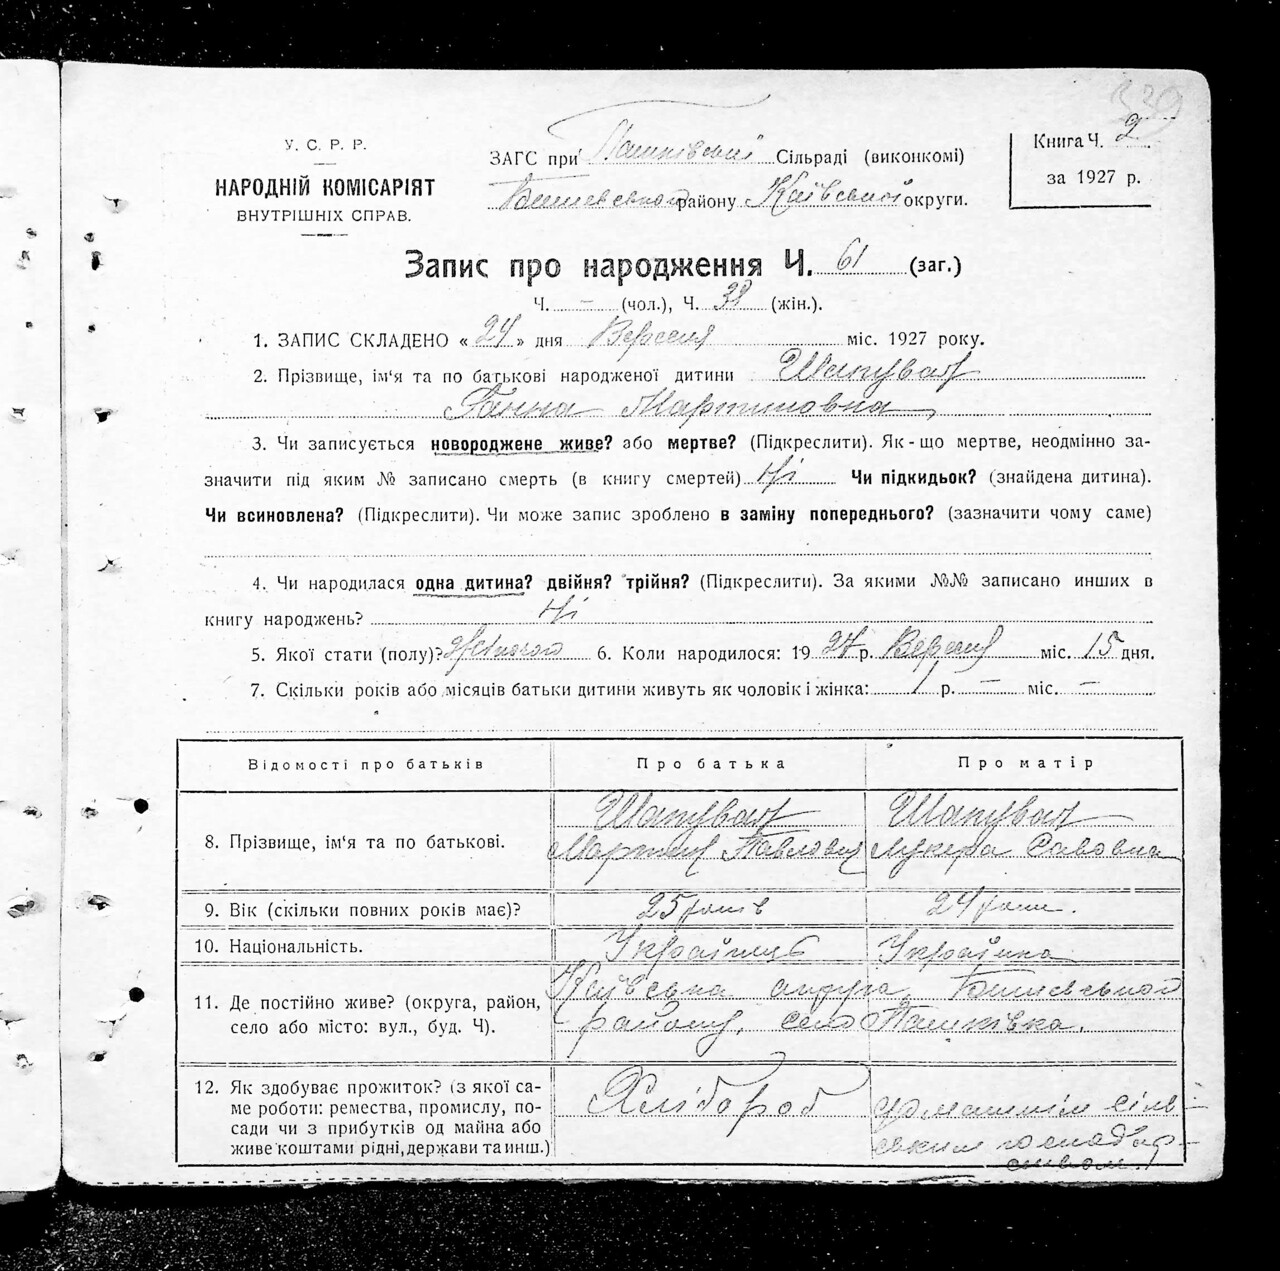 339
У. С. Р. Р.
НАРОДНІЙ КОМІСАРІЯТ
ВНУТРІШНІХ СПРАВ.
ЗАГС при Пашківській Сільраді (виконкомі)
Бишевського району Київської округи.
Книга Ч. 2
за 1927 р.
Запис про народження Ч. 61 (заг.)
Ч. – (чол.), Ч. 31 (жін.).
1. ЗАПИС СКЛАДЕНО « 24 » дня Вересня міс. 1927 року.
2. Прізвище, ім'я та по батькові народженої дитини Шапувал
Ганна Мартиновна
3. Чи записується новороджене живе? або мертве? (Підкреслити). Як-що мертве, неодмінно за-
значити під яким № записано смерть (в книгу смертей) Ні Чи підкидьок? (знайдена дитина).
Чи всиновлена? (Підкреслити). Чи може запис зроблено в заміну попереднього? (зазначити чому саме)
4. Чи народилася одна дитина? двійня? трійня? (Підкреслити). За якими №№ записано инших в
книгу народжень? Ні
5. Якої стати (полу)? Жіночого 6. Коли народилося: 1927 р. Вересня міс. 15 дня.
7. Скільки років або місяців батьки дитини живуть як чоловік і жінка: 1 р. – міс. –
Відомості про батьків Про батька Про матір
8. Прізвище, ім'я та по батькові. Шапувал Мартин Павлович Шапувал Лукера Савовна
9. Вік (скільки повних років має)? 25 років 24 роки.
10. Національність. Українець Українка
11. Де постійно живе? (округа, район, Київська округа, Бишевського
село або місто: вул., буд. Ч). району, село Пашківка.
12. Як здобуває прожиток? (з якої са-
ме роботи: ремества, промислу, по- Хлібороб домашнім сіль-
сади чи з прибутків од майна або ським господар-
живе коштами рідні, держави та инш.) ством.